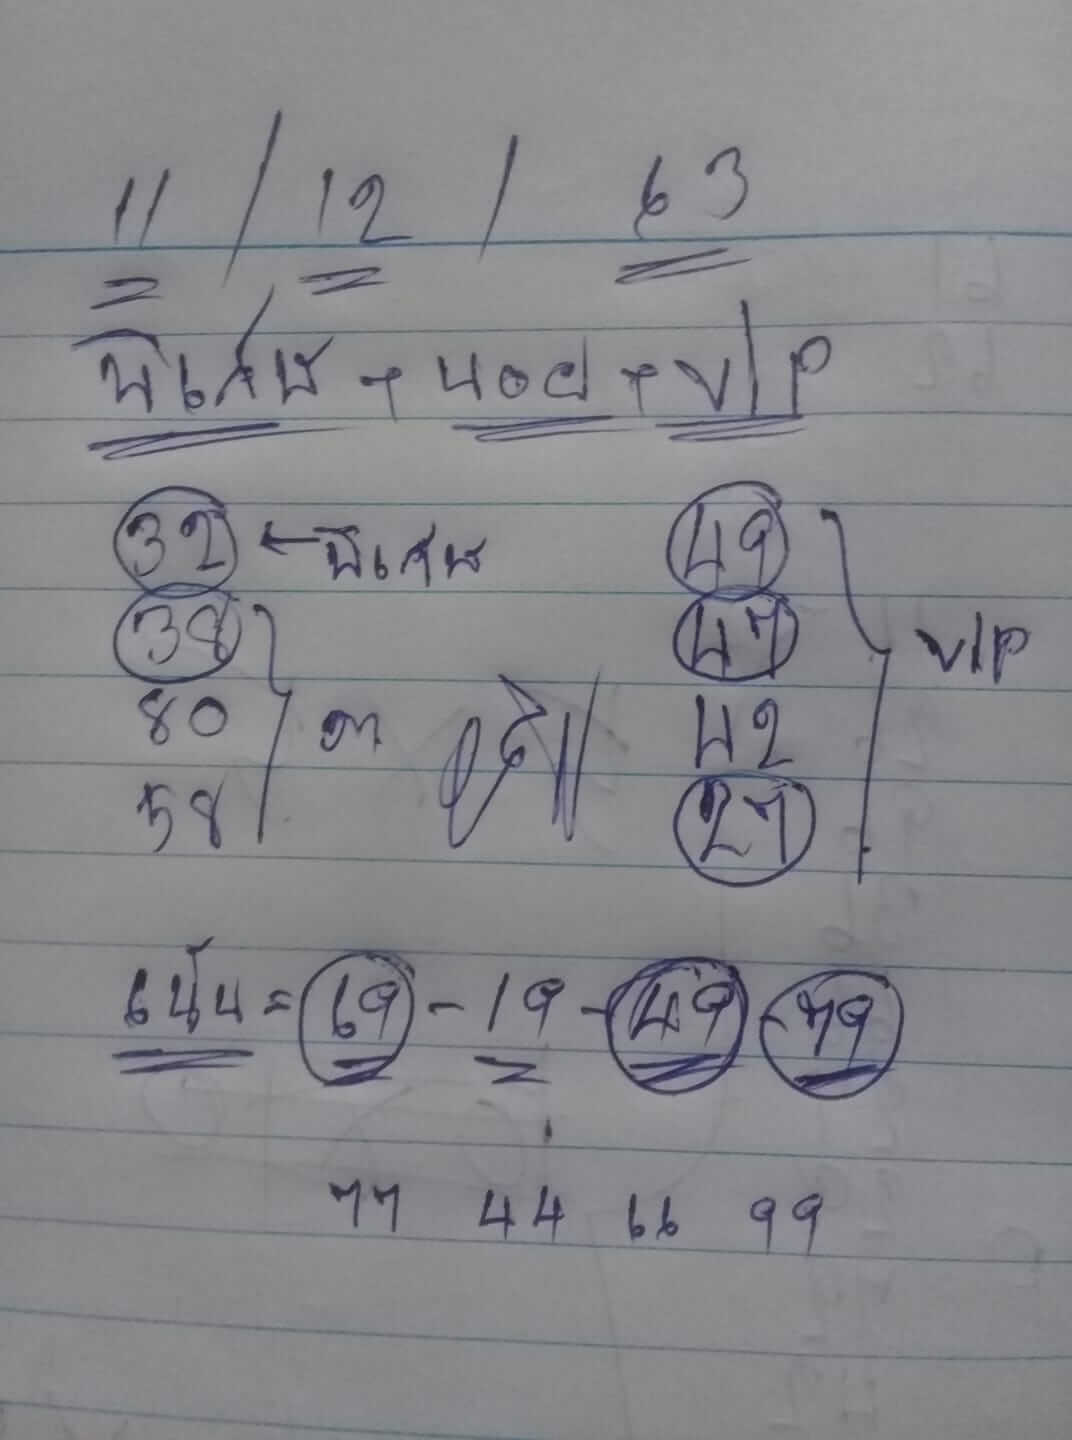 11 / 12 / 63
พิเศษ + นอย + VIP
32 ← พิเศษ 49
38 47 VIP
80 ฮา 42
58 27
เน้น = 69 - 19 - 49 - 79
77 44 66 99